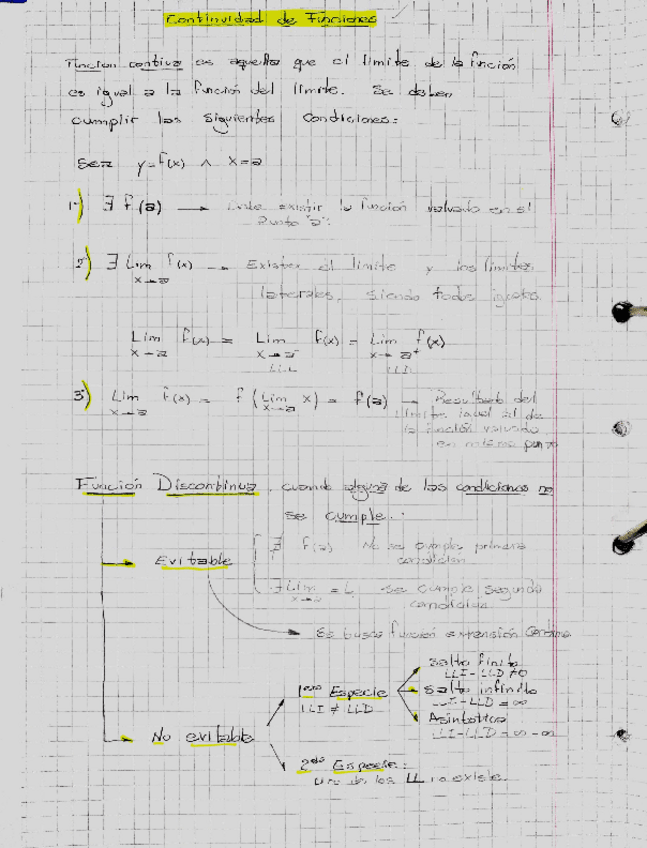 Continuidad de Funciones
Función continua es aquella que el límite de la función
es igual a la función del límite. Se deben
cumplir las siguientes condiciones:
y=f(x) ∧ x=a
1º) ∃ f(a) → Debe existir la función valuada en el
Punto "a".
2º) ∃ Lim f(x) → Existen el límite y los límites
x→a
laterales, siendo todos iguales.
Lim f(x) = Lim f(x) = Lim f(x)
x→a x→a⁻ x→a⁺
LLI LLD
3º) Lim f(x) = f(Lim x) = f(a) → Resultado del
x→a x→a límite igual al de
la función valuada
en mismo punto
Función Discontinua, cuando alguna de las condiciones no
se cumple.
∄ f(a) No se cumple primera
condición
Evitable
∃ Lim = L se cumple segunda
x→a condición
Es busca función extensión Continua
Salto finito
LLI-LLD ≠ 0
1era Especie Salto infinito
LLI ≠ LLD LLI-LLD = ∞
Asintótica
LLI-LLD = ∞-∞
No evitable
2da Especie:
Uno de los LL no existe.